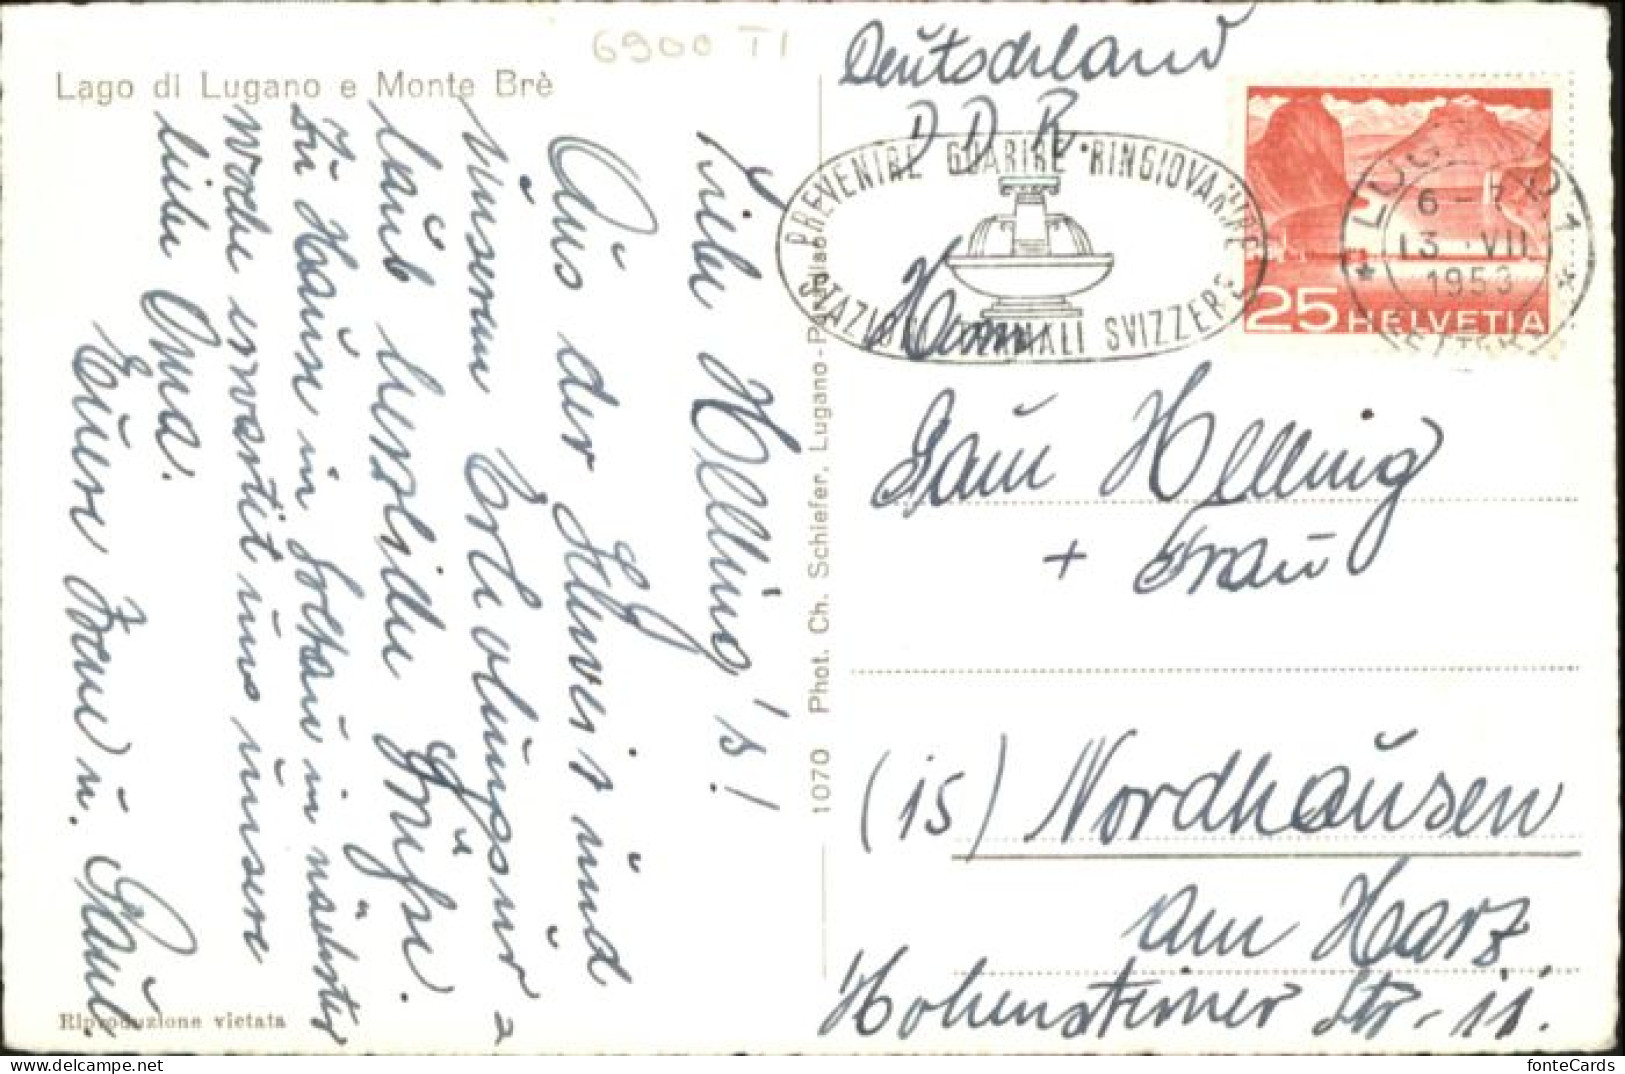 6900 TI
Lago di Lugano e Monte Brè
Liebe Helling's!
Aus der Schweiz und
unserem Erholungsur=
laub herzliche Grüße.
Zu Hause in Loltau in nächster
Woche erwartet uns unsere
liebe Oma.
Eure u. Paul
Riproduzione vietata
1070 Phot. Ch. Schiefer, Lugano-Paradiso
Deutschland
DDR.
PREVENIRE GUARIRE RINGIOVANIRE
STAZIONI TERMALI SVIZZERE
LUGANO 1
6-7
13.VII
1953
25 HELVETIA
Herrn
Helling
+ Frau
(15) Nordhausen
am Harz
Hohensteiner Str. 11.
fonteCards